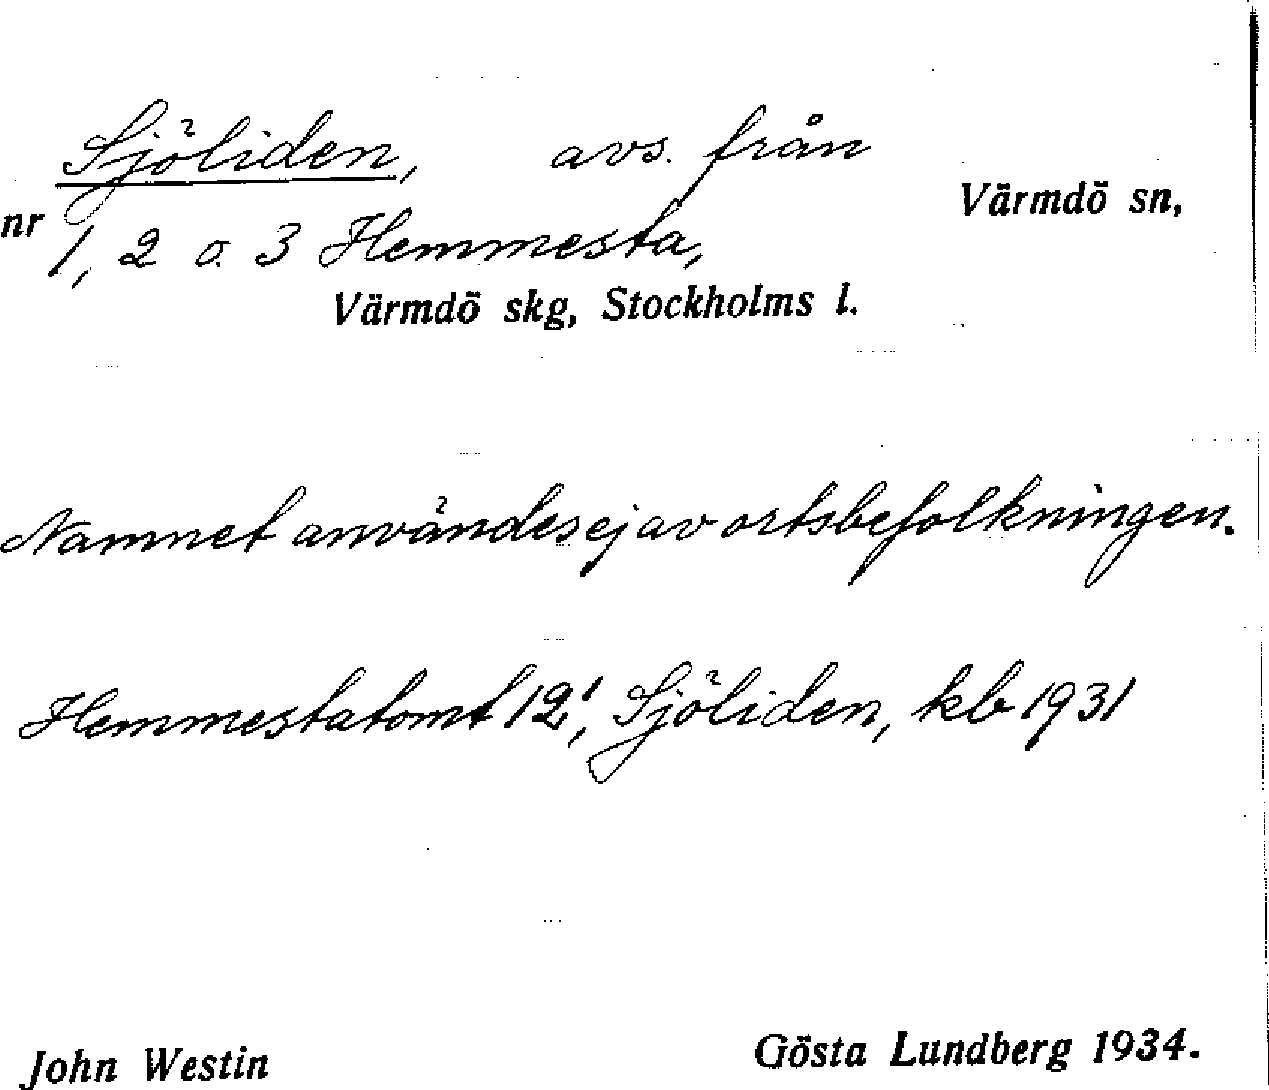 Sjöliden, avs. från
Värmdö sn,
nr 1, 2 o. 3 Hemmesta,
Värmdö skg, Stockholms l.
Namnet användes ej av ortsbefolkningen.
Hemmestatomt 12¹, Sjöliden, kb 1931
John Westin Gösta Lundberg 1934.